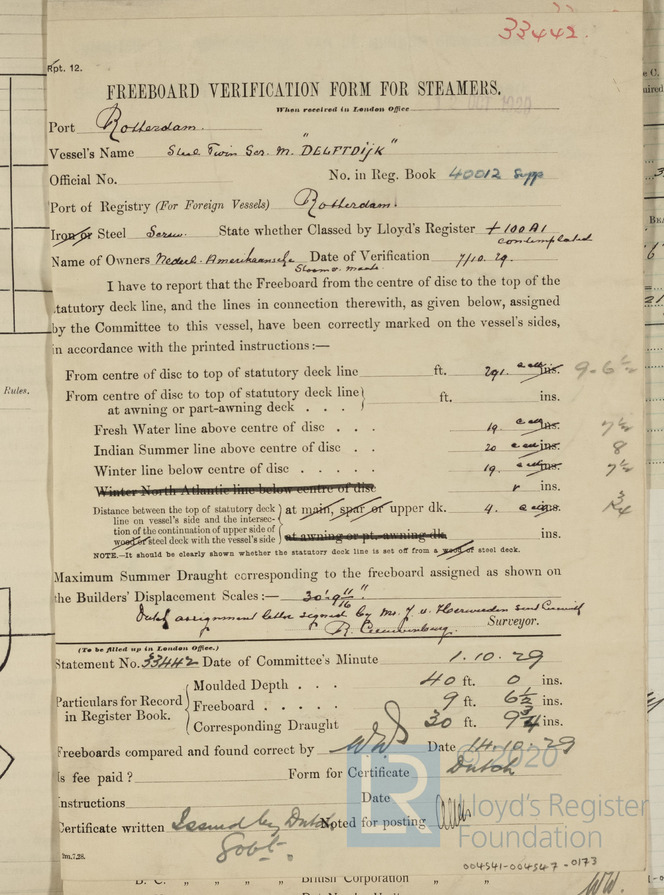 33442.
Rpt. 12.
FREEBOARD VERIFICATION FORM FOR STEAMERS.
When received in London Office
Port Rotterdam.
Vessel's Name Steel Twin Scr. M. "DELFTDIJK"
Official No. No. in Reg. Book 40012 Supp
Port of Registry (For Foreign Vessels) Rotterdam.
Iron or Steel Screw. State whether Classed by Lloyd's Register +100A1
contemplated
Name of Owners Nederl. Amerikaansche Date of Verification 7/10.29.
Stoomv. Maats.
I have to report that the Freeboard from the centre of disc to the top of the
statutory deck line, and the lines in connection therewith, as given below, assigned
by the Committee to this vessel, have been correctly marked on the vessel's sides,
in accordance with the printed instructions:—
From centre of disc to top of statutory deck line ft. 291. ins. 9-6½
From centre of disc to top of statutory deck line
at awning or part-awning deck . . . ft. ins.
Fresh Water line above centre of disc . . . 19 ins. 7½
Indian Summer line above centre of disc . . 20 ins. 8
Winter line below centre of disc . . . . . 19. ins. 7½
Winter North Atlantic line below centre of disc ins.
Distance between the top of statutory deck
line on vessel's side and the intersec- at main, spar or upper dk. 4. ins. ¾
tion of the continuation of upper side of
wood or steel deck with the vessel's side at awning or pt. awning dk ins.
NOTE.—It should be clearly shown whether the statutory deck line is set off from a wood or steel deck.
Maximum Summer Draught corresponding to the freeboard assigned as shown on
the Builders' Displacement Scales:— 30'. 9 11/16".
Dutch assignment letter signed by Mr. J v.
Surveyor.
(To be filled up in London Office.)
Statement No. 33442 Date of Committee's Minute 1.10.29
Particulars for Record
in Register Book.
Moulded Depth . . . 40 ft. 0 ins.
Freeboard . . . . . 9 ft. 6½ ins.
Corresponding Draught 30 ft. 9¾ ins.
Freeboards compared and found correct by Date 14.10.29
Is fee paid? Form for Certificate Dutch
Instructions Date
Certificate written Issued by Dutch Noted for posting
Govt.
2m,7,28.
004541-004547-0173
© 2020
Lloyd's Register
Foundation
B. C. „ „ „ „ British Corporation „ „
Rules.